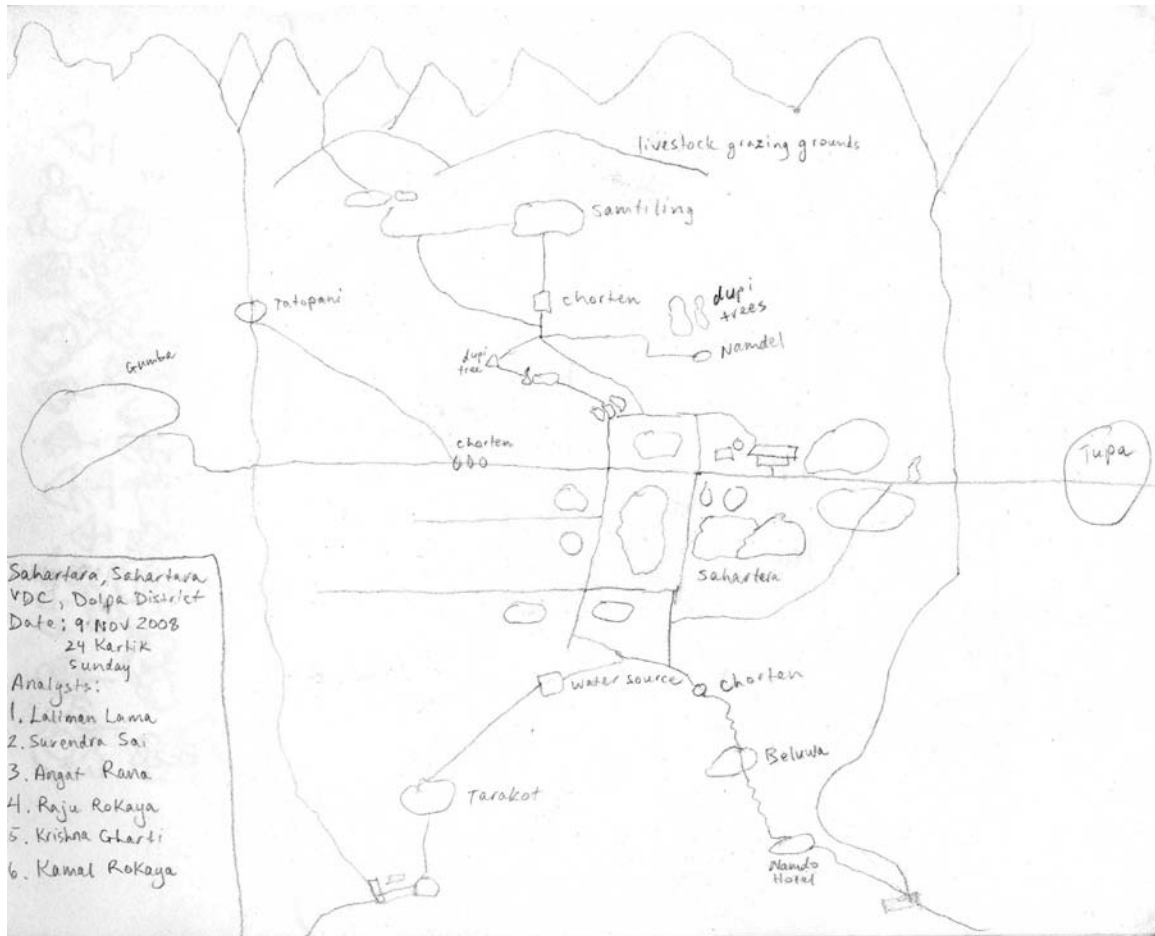 livestock grazing grounds
Samtiling
Tatopani
chorten
dupi
trees
Namdel
Gumba
dupi
tree
chorten
Tupa
Sahartera
water source
chorten
Beluwa
Tarakot
Namdo
Hotel
Sahartara, Sahartara
VDC, Dolpa District
Date: 9 NOV 2008
24 Kartik
Sunday
Analysts:
1. Laliman Lama
2. Surendra Sai
3. Angat Rana
4. Raju Rokaya
5. Krishna Gharti
6. Kamal Rokaya